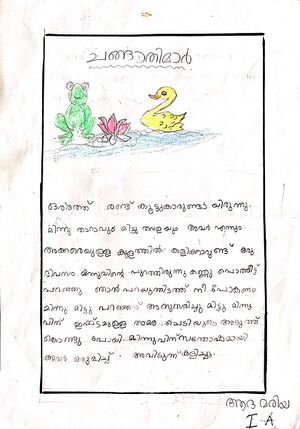 ചങ്ങാതിമാർ
ഒരിടത്ത് രണ്ട് കൂട്ടുകാരുണ്ടായിരുന്നു.
മിന്നു താറാവും മിട്ടു തവളയും അവർ എന്നും
അക്കരെയുള്ള കുളത്തിൽ കളിക്കാറുണ്ട് ഒരു
ദിവസം മിന്നുവിന്റെ പുറത്തിരുന്നു കണ്ണു പൊത്തീട്ട്
പറഞ്ഞു ഞാൻ പറയുന്നിടത്ത് നീ പോകണം
മിന്നു മിട്ടു പറഞ്ഞത് അനുസരിച്ചു മിട്ടു മിന്നു
വിന് ഇഷ്ട്ടമുള്ള താമര ചെടിയുടെ അടുത്ത്
കൊണ്ടു പോയി മിന്നുവിന് സന്തോഷമായി
അവർ ഒരുമിച്ച് അവിടുന്ന് കളിച്ചു.
ആദ മരിയ
I A